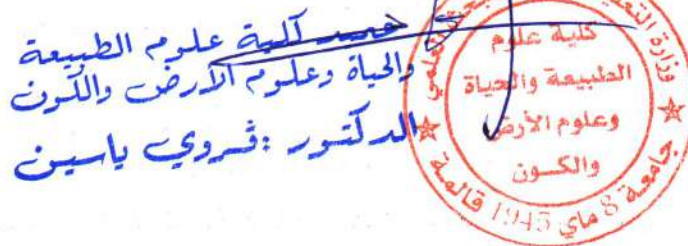 عميد كلية علوم الطبيعة
والحياة وعلوم الأرض والكون
الدكتور : قروي ياسين
وزارة التعليم
العلمي
كلية علوم
الطبيعة والحياة
وعلوم الأرض
والكون
جامعة 8 ماي 1945 قالمة